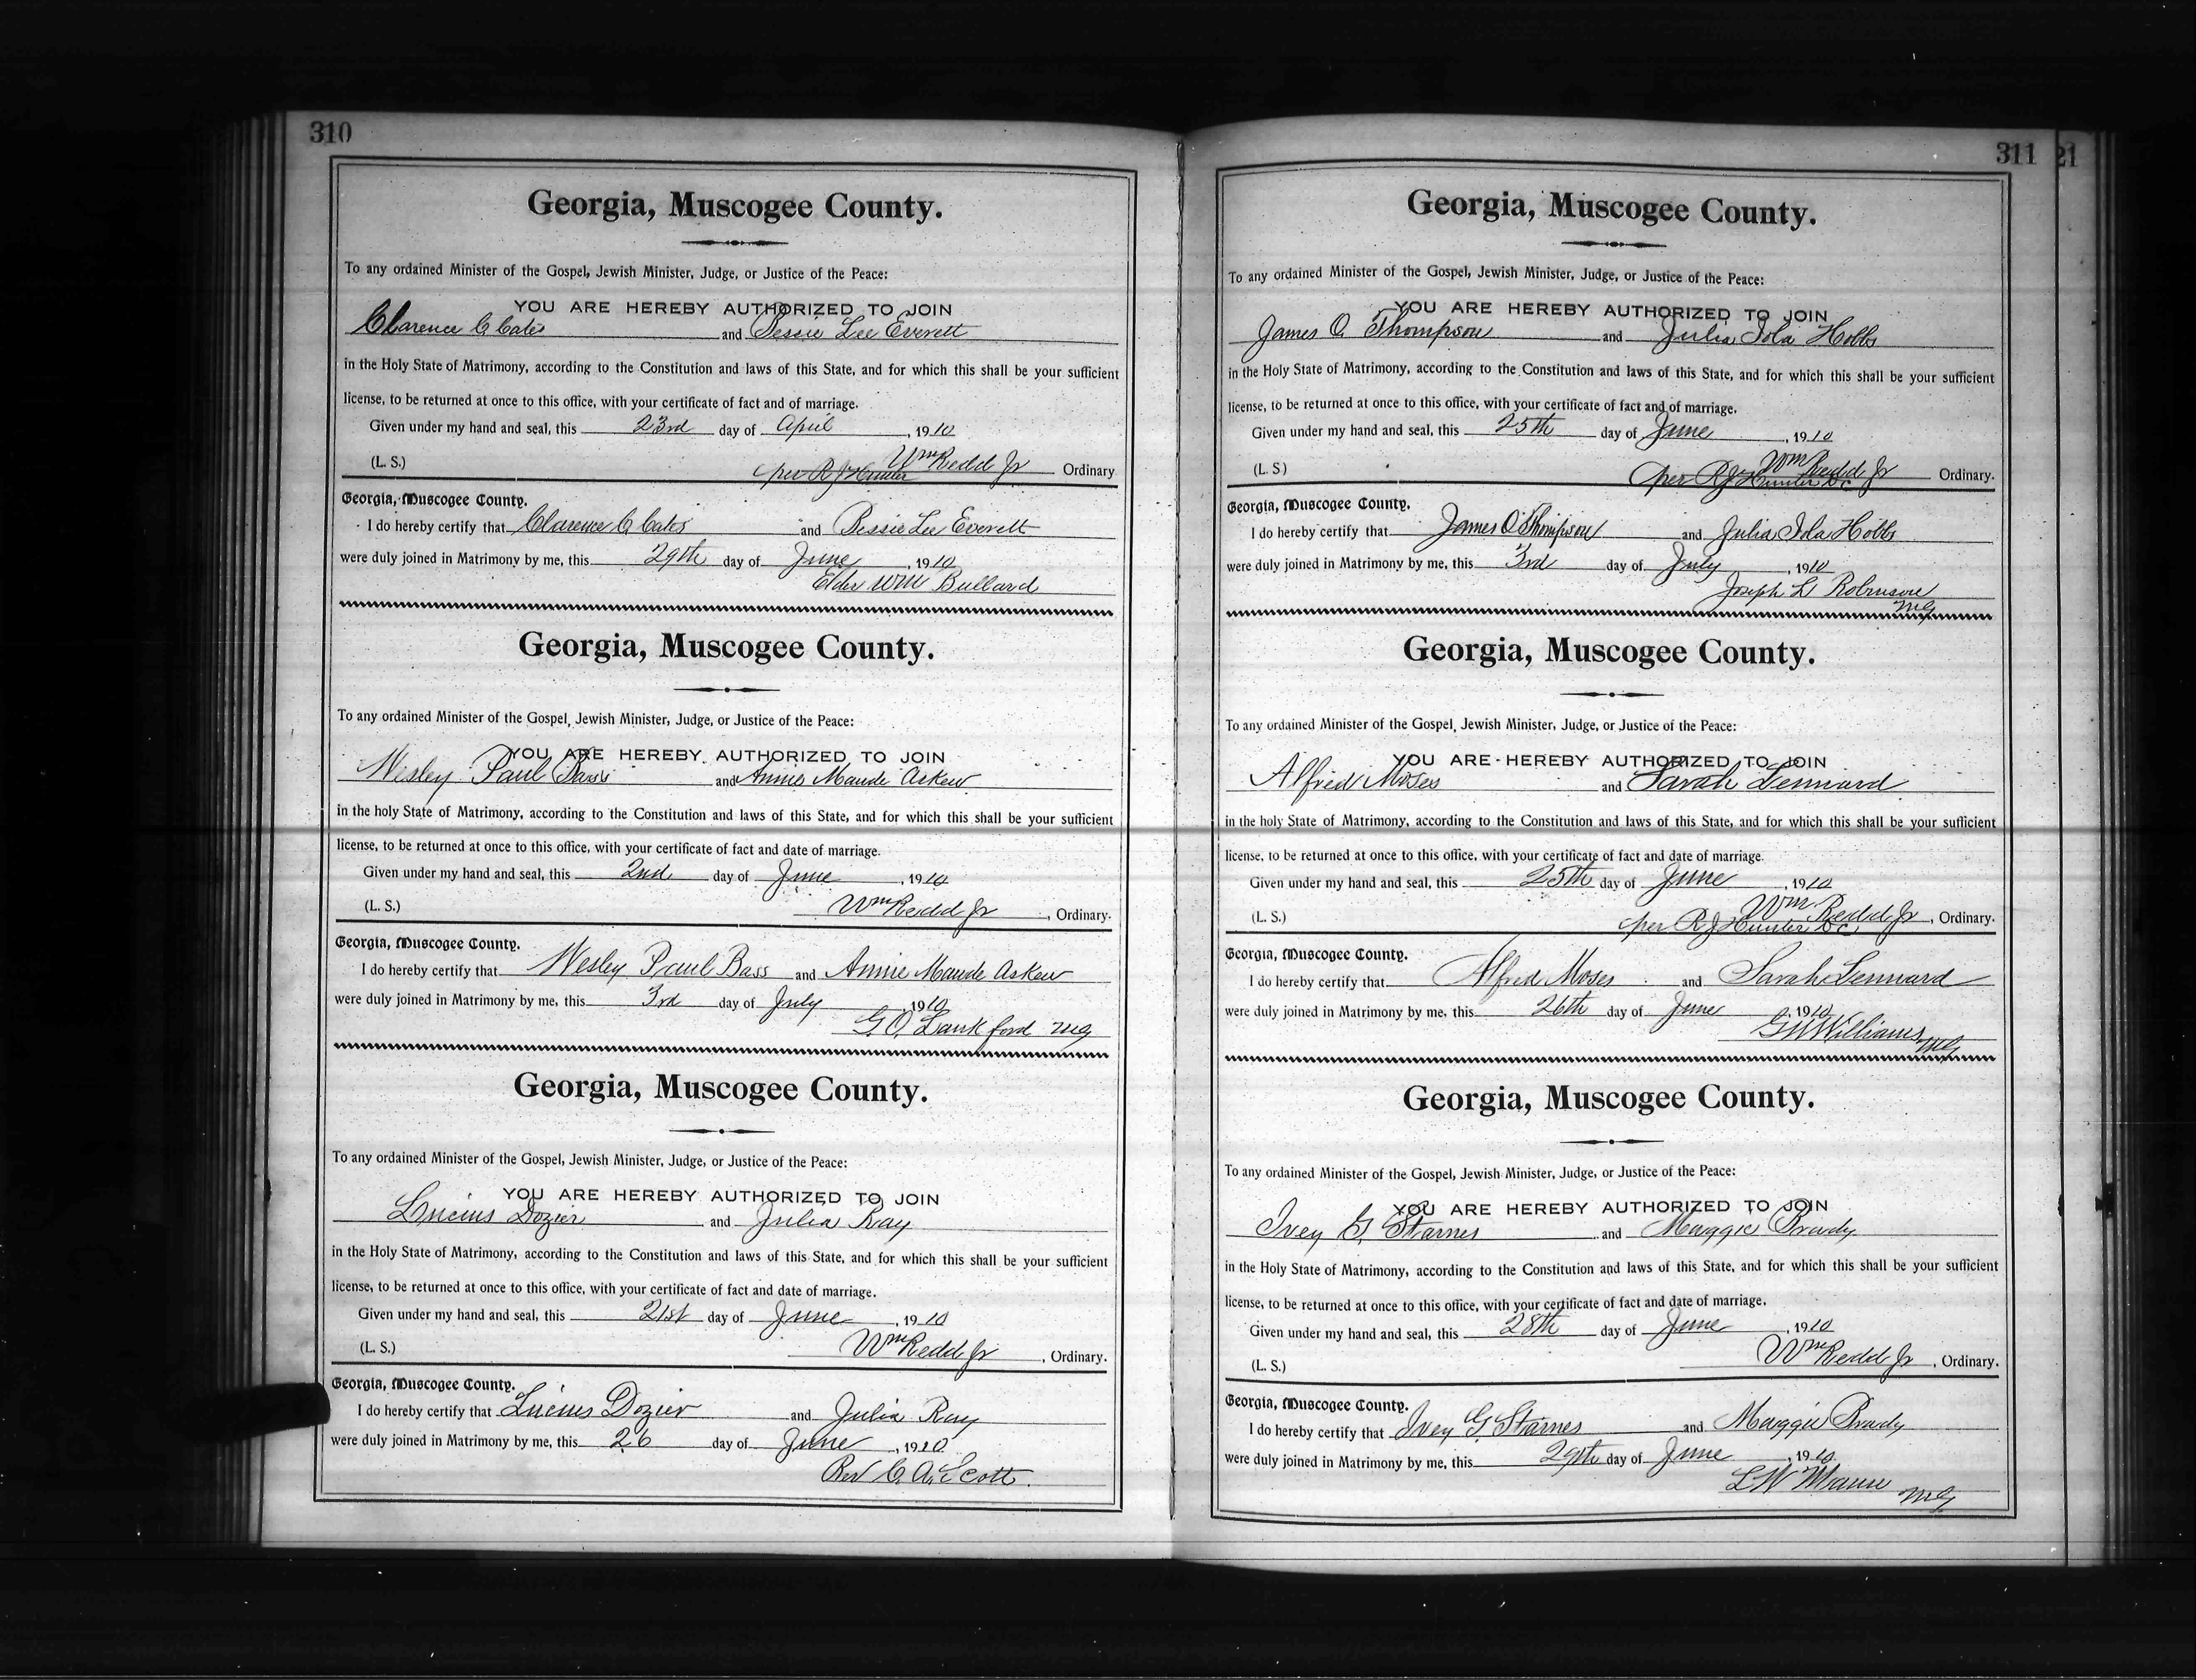 310
Georgia, Muscogee County.
To any ordained Minister of the Gospel, Jewish Minister, Judge, or Justice of the Peace:
YOU ARE HEREBY AUTHORIZED TO JOIN
Clarence C Cates and Bessie Lee Everett
in the Holy State of Matrimony, according to the Constitution and laws of this State, and for which this shall be your sufficient
license, to be returned at once to this office, with your certificate of fact and of marriage.
Given under my hand and seal, this 23rd day of April, 1910
(L. S.) Wm Redd Jr Ordinary
per R J Hunter
Georgia, Muscogee County.
I do hereby certify that Clarence C Cates and Bessie Lee Everett
were duly joined in Matrimony by me, this 29th day of June, 1910
Elder Wm Bullard
Georgia, Muscogee County.
To any ordained Minister of the Gospel, Jewish Minister, Judge, or Justice of the Peace:
YOU ARE HEREBY AUTHORIZED TO JOIN
Wesley Paul Bass and Annie Maude Askew
in the holy State of Matrimony, according to the Constitution and laws of this State, and for which this shall be your sufficient
license, to be returned at once to this office, with your certificate of fact and date of marriage.
Given under my hand and seal, this 2nd day of June, 1910
(L. S.) Wm Redd Jr, Ordinary.
Georgia, Muscogee County.
I do hereby certify that Wesley Paul Bass and Annie Maude Askew
were duly joined in Matrimony by me, this 3rd day of July, 1910
G. O. Lankford MG
Georgia, Muscogee County.
To any ordained Minister of the Gospel, Jewish Minister, Judge, or Justice of the Peace:
YOU ARE HEREBY AUTHORIZED TO JOIN
Lucius Dozier and Julia Ray
in the Holy State of Matrimony, according to the Constitution and laws of this State, and for which this shall be your sufficient
license, to be returned at once to this office, with your certificate of fact and date of marriage.
Given under my hand and seal, this 21st day of June, 1910
(L. S.) Wm Redd Jr, Ordinary.
Georgia, Muscogee County.
I do hereby certify that Lucius Dozier and Julia Ray
were duly joined in Matrimony by me, this 26 day of June, 1910
Rev C. A. Scott.
311
21
Georgia, Muscogee County.
To any ordained Minister of the Gospel, Jewish Minister, Judge, or Justice of the Peace:
YOU ARE HEREBY AUTHORIZED TO JOIN
James O. Thompson and Julia Iola Hobbs
in the Holy State of Matrimony, according to the Constitution and laws of this State, and for which this shall be your sufficient
license, to be returned at once to this office, with your certificate of fact and of marriage.
Given under my hand and seal, this 25th day of June, 1910
(L. S) Wm Redd Jr Ordinary.
per R J Hunter DC
Georgia, Muscogee County.
I do hereby certify that James O Thompson and Julia Iola Hobbs
were duly joined in Matrimony by me, this 3rd day of July, 1910
Joseph L Robinson
MG
Georgia, Muscogee County.
To any ordained Minister of the Gospel, Jewish Minister, Judge, or Justice of the Peace:
YOU ARE HEREBY AUTHORIZED TO JOIN
Alfred Moses and Sarah Lennard
in the holy State of Matrimony, according to the Constitution and laws of this State, and for which this shall be your sufficient
license, to be returned at once to this office, with your certificate of fact and date of marriage.
Given under my hand and seal, this 25th day of June, 1910
(L. S.) Wm Redd Jr, Ordinary.
per R J Hunter DC
Georgia, Muscogee County.
I do hereby certify that Alfred Moses and Sarah Lennard
were duly joined in Matrimony by me, this 26th day of June, 1910
G W Williams MG
Georgia, Muscogee County.
To any ordained Minister of the Gospel, Jewish Minister, Judge, or Justice of the Peace:
YOU ARE HEREBY AUTHORIZED TO JOIN
Ivey G Starnes and Maggie Brady
in the Holy State of Matrimony, according to the Constitution and laws of this State, and for which this shall be your sufficient
license, to be returned at once to this office, with your certificate of fact and date of marriage.
Given under my hand and seal, this 28th day of June, 1910
(L. S.) Wm Redd Jr, Ordinary.
Georgia, Muscogee County.
I do hereby certify that Ivey G Starnes and Maggie Brady
were duly joined in Matrimony by me, this 29th day of June, 1910
L W Mann MG